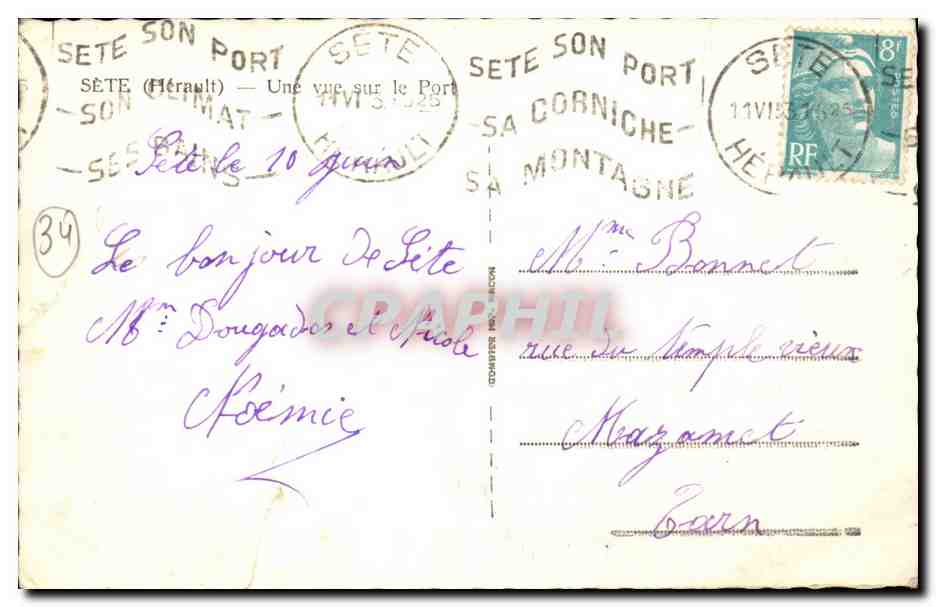 SETE SON PORT
SON CLIMAT
SES BAINS
SETE
HÉRAULT
SETE SON PORT
SA CORNICHE
SA MONTAGNE
SETE
HÉRAULT
8F
RF
SÈTE (Hérault) — Une vue sur le Port
Sète le 10 juin
34
Le bonjour de Sète
Mme Dougados et Nicole
Noémie
CPARAMA
Mme Bonnet
rue du temple vieux
Mazamet
Tarn